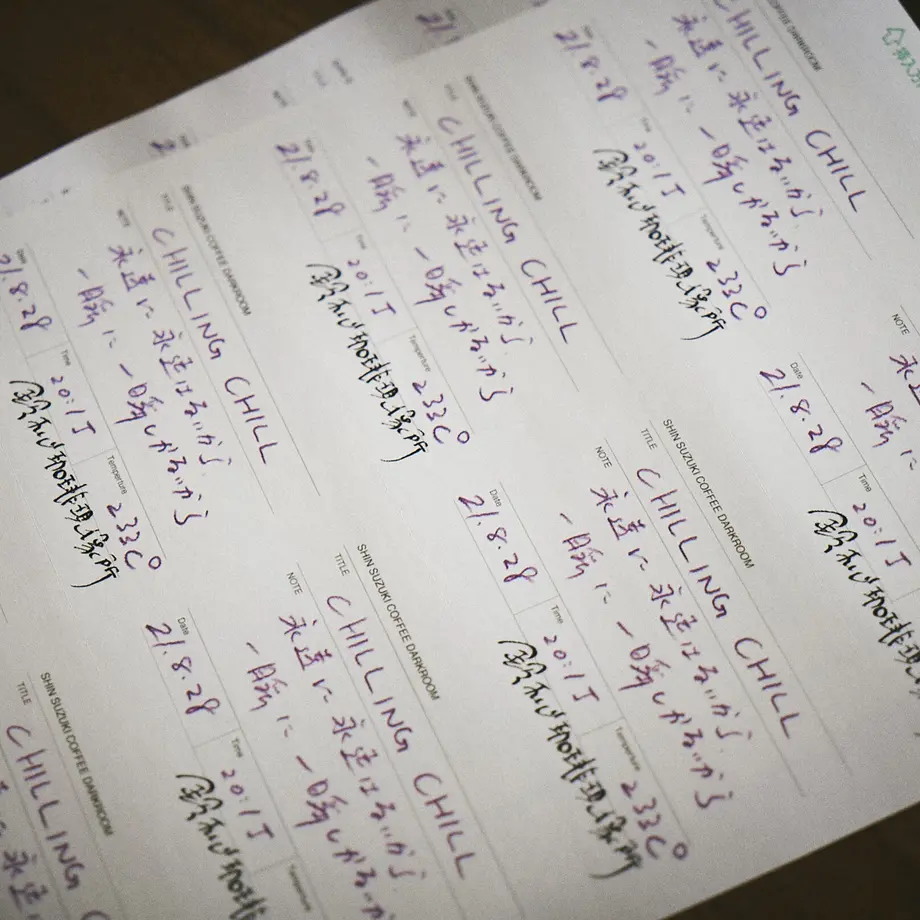 SHIN SUZUKI COFFEE DARKROOM
TITLE CHILLING CHILL
NOTE 永遠に 永遠はないから
一瞬に 一瞬しかないから
Date 21.8.28 Time 20:15 Temperture 233C°
鈴木心珈琲現像所
SHIN SUZUKI COFFEE DARKROOM
TITLE CHILLING CHILL
NOTE 永遠に 永遠はないから
一瞬に 一瞬しかないから
21.8.28 Time 20:15 Temperture 233C°
鈴木心珈琲現像所
COFFEE DARKROOM
CHILLING CHILL
永遠に 永遠はないから
一瞬に 一瞬しかないから
21.8.28 Time 20:15 Temperture 233C°
鈴木心珈琲現像所
SHIN SUZUKI COFFEE DARKROOM
TITLE CHILLING
SHIN SUZUKI COFFEE DARKROOM
TITLE CHILLING CHILL
NOTE 永遠に 永遠はないから
一瞬に 一瞬しかない
Date 21.8.28 Time 20:15 Temperture
鈴木心珈琲
SHIN SUZUKI COFFEE DARKROOM
TITLE CHILLING CHILL
NOTE 永遠に 永遠はないから
一瞬に 一瞬しかないから
Date 21.8.28 Time 20:15 Temperture 233C°
鈴木心珈琲現像所
NOTE 永
一瞬に
Date 21.8.28 Time 20:15
鈴木心珈琲現